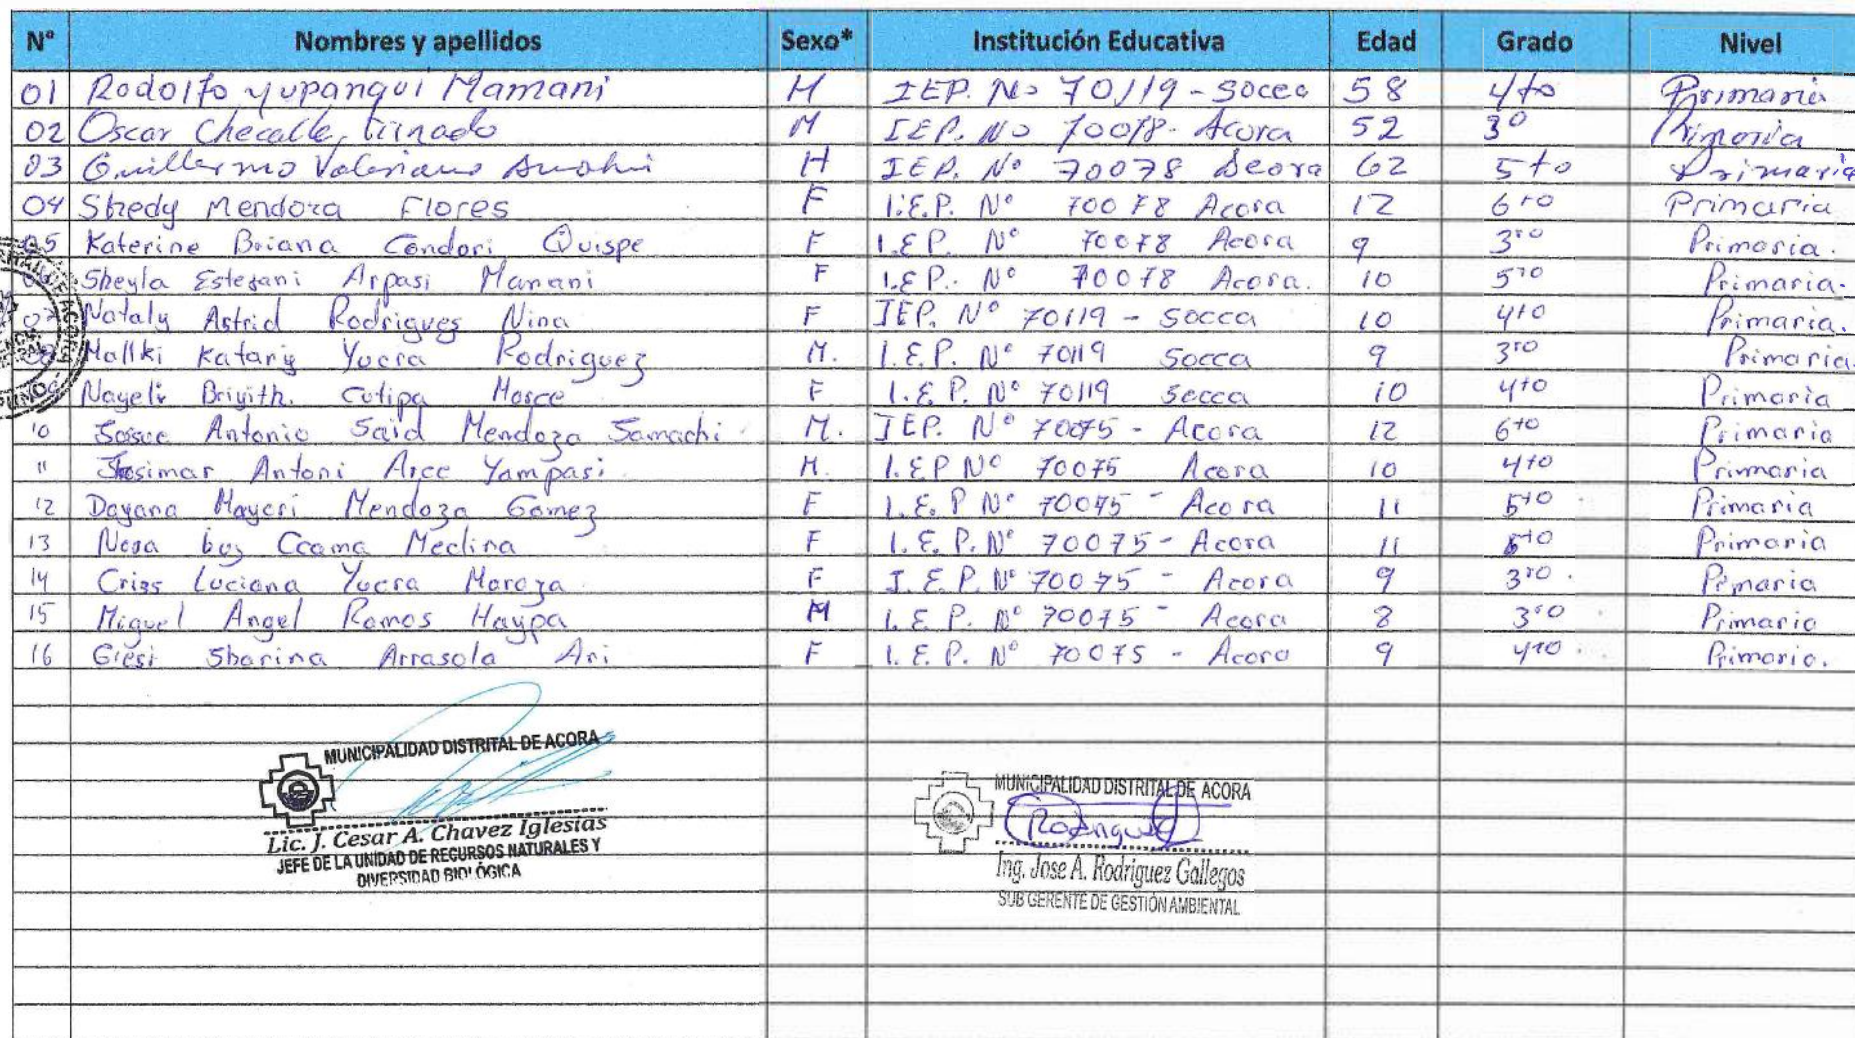 N° Nombres y apellidos Sexo* Institución Educativa Edad Grado Nivel
01 Rodolfo Yupanqui Mamani H IEP. No 70119 - Socca 58 4to Primaria
02 Oscar Checalle M IEP. No 70078 - Acora 52 3° Primaria
03 Guillermo Valeriano H IEP. No 70078 Acora 62 5to Primaria
04 Shedy Mendoza Flores F I.E.P. N° 70078 Acora 12 6to Primaria
05 Katerine Briana Condori Quispe F I.E.P. N° 70078 Acora 9 3ro Primaria.
Sheyla Estefani Arpasi Mamani F I.E.P. N° 70078 Acora. 10 5to Primaria.
07 Nataly Astrid Rodrigues Nina F IEP. N° 70119 - Socca 10 4to Primaria.
Mallki Katariy Yucra Rodriguez M. I.E.P. N° 70119 Socca 9 3ro Primaria.
Nayeli Briyith. Cutipa F I.E.P. N° 70119 Socca 10 4to Primaria
10 Josue Antonio Said Mendoza Samachi M. IEP. N° 70075 - Acora 12 6to Primaria
11 Josimar Antoni Arce Yampasi M. I.E.P N° 70075 Acora 10 4to Primaria
12 Dayana Mayeri Mendoza Gomez F I.E.P N° 70075 - Acora 11 5to Primaria
13 Ccama Medina F I.E.P. N° 70075 - Acora 11 5to Primaria
14 Luciana Yucra F I.E.P. N° 70075 - Acora 9 3ro. Primaria
15 Miguel Angel Ramos Haypa M I.E.P. N° 70075 - Acora 8 3ro Primaria
16 Giesi Sharina Arrasola Ari F I.E.P. N° 70075 - Acora 9 4to. Primaria.
MUNICIPALIDAD DISTRITAL DE ACORA
Lic. J. Cesar A. Chavez Iglesias
JEFE DE LA UNIDAD DE RECURSOS NATURALES Y
DIVERSIDAD BIOLÓGICA
MUNICIPALIDAD DISTRITAL DE ACORA
Ing. Jose A. Rodriguez Gallegos
SUB GERENTE DE GESTIÓN AMBIENTAL